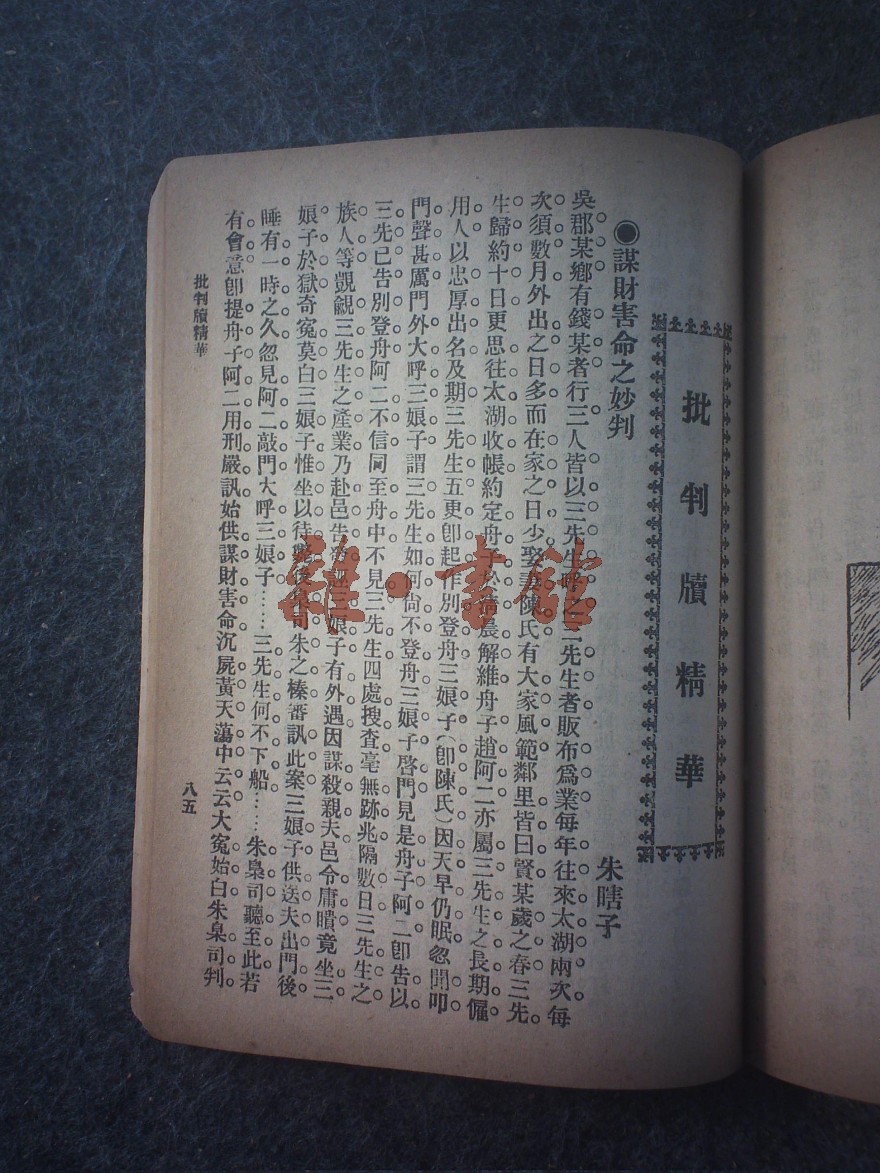 批判牘精華
◉謀財害命之妙判
朱瞎子
吳郡某鄉有錢某者行三人皆以三先生呼之三先生者販布爲業每年往來太湖兩次每
次須數月外出之日多而在家之日少娶妻陳氏有大家風範鄰里皆曰賢某歲之春三先
生歸約十日更思往太湖收帳約定舟子於清晨解維舟子趙阿二亦屬三先生之長期僱
用人以忠厚出名及期三先生五更卽起作別登舟三娘子(卽陳氏)因天早仍眠忽聞叩
門聲甚厲門外大呼三娘子謂三先生如何尙不登舟三娘子啓門見是舟子阿二卽告以
三先已告別登舟阿二不信同至舟中不見三先生四處搜查毫無跡兆隔數日三先生之
族人等覬覦三先生之產業乃赴邑告發誣三娘子有外遇因謀殺親夫邑令庸瞶竟坐三
娘子於獄奇寃莫白三娘子惟坐以待斃後臬司朱之榛審訊此案三娘子供送夫出門後
睡有一時之久忽見阿二敲門大呼三娘子……三先生何不下船……朱臬司聽至此若
有會意卽提舟子阿二用刑嚴訊始供謀財害命沉屍黃天蕩中云云大寃始白朱臬司判
批判牘精華
八五
雜·書館